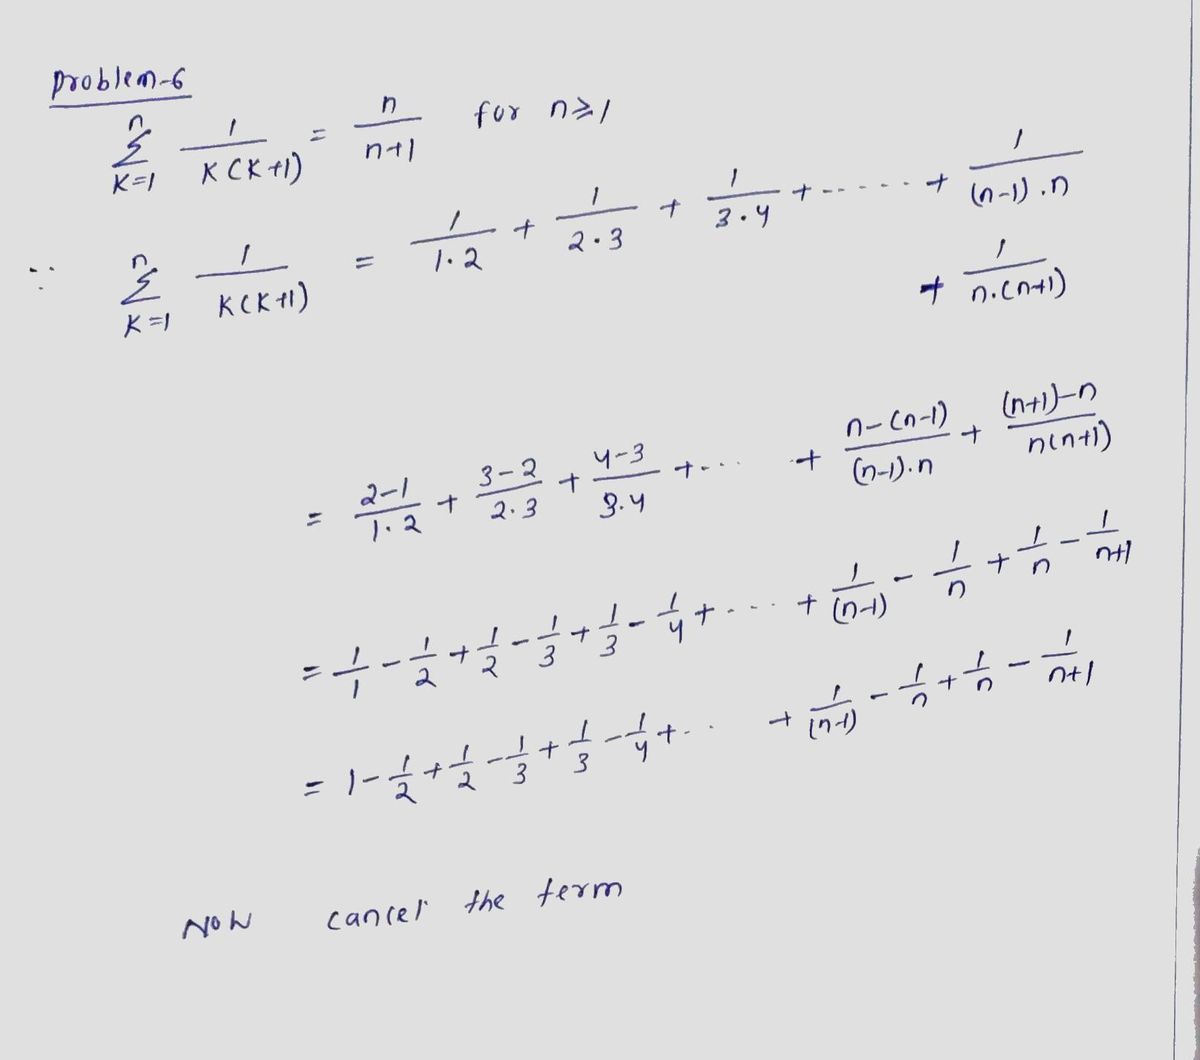 Problem-6
n∑K=1 1/K(K+1) = n/n+1 for n≥1
∵ n∑K=1 1/K(K+1) = 1/1·2 + 1/2·3 + 1/3·4 + ----- + 1/(n-1).n
+ 1/n.(n+1)
= 2-1/1·2 + 3-2/2·3 + 4-3/3·4 + ... + n-(n-1)/(n-1).n + (n+1)-n/n(n+1)
= 1/1 - 1/2 + 1/2 - 1/3 + 1/3 - 1/4 + ---- + 1/(n-1) - 1/n + 1/n - 1/n+1
= 1 - 1/2 + 1/2 - 1/3 + 1/3 - 1/4 + ... + 1/(n-1) - 1/n + 1/n - 1/n+1
Now cancel the term